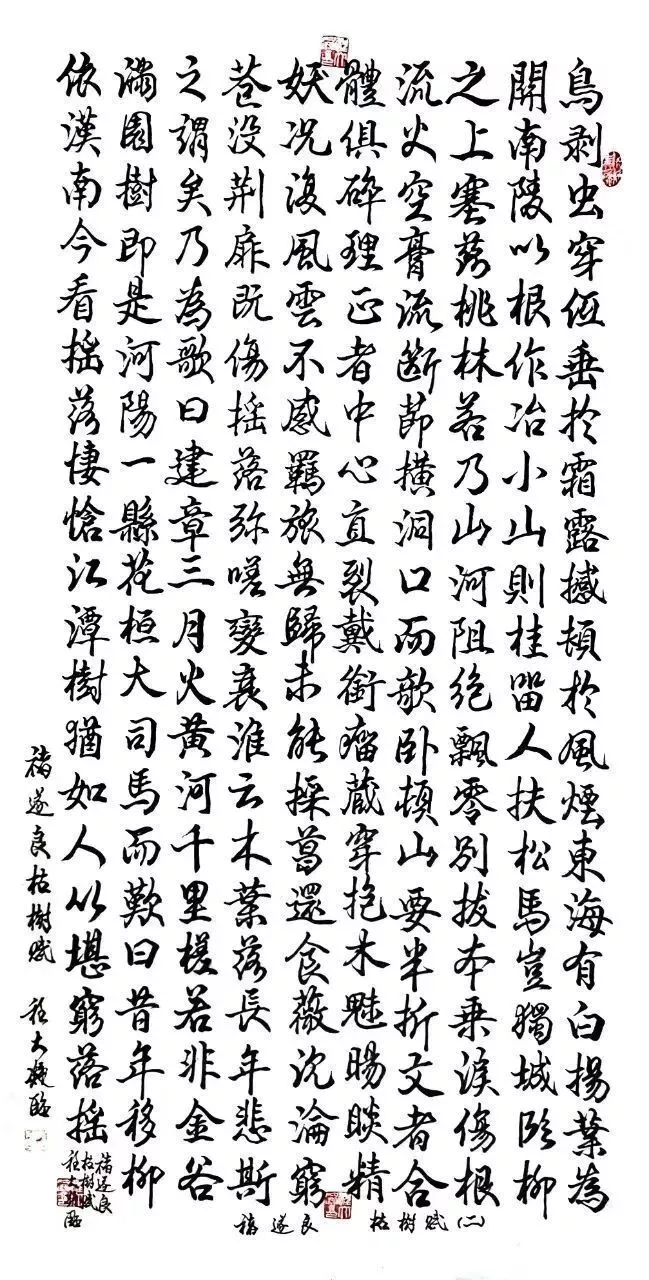 鳥剥虫穿伍垂於霜露撼頓於風煙東海有白揚葉為
開南陵以根作冶小山則桂留人扶松馬豈獨城臨柳
之上塞落桃林若乃山河阻絶飄零別拔本垂淚傷根
流火空膏流斷節横洞口而欹卧頓山要半折文者合
體俱碎理正者中心直裂戴衝瘤藏穿抱木魅睗睒精
妖況復風雲不感羈旅無歸未能採葛還食薇沉淪窮
巷没荆扉既傷摇落弥嗟變衰淮云木葉落長年悲斯
之謂矣乃為歌曰建章三月火黄河千里槎若非金谷
满園樹即是河陽一縣花桓大司馬而歎曰昔年移柳
依漢南今看摇落悽愴江潭樹猶如人以堪窮落摇
褚遂良枯樹賦 程大臨
褚遂良
枯樹賦
程大臨
褚遂良 枯樹賦(二)